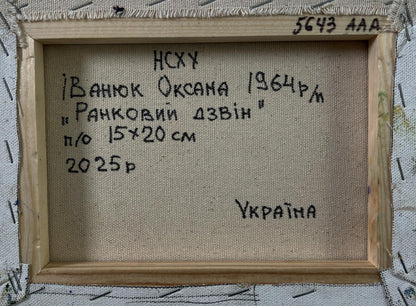 5643 ААА
НСХУ
Іванюк Оксана 1964 р/н
„Ранковий дзвін"
п/о 15×20 см
2025р
Україна